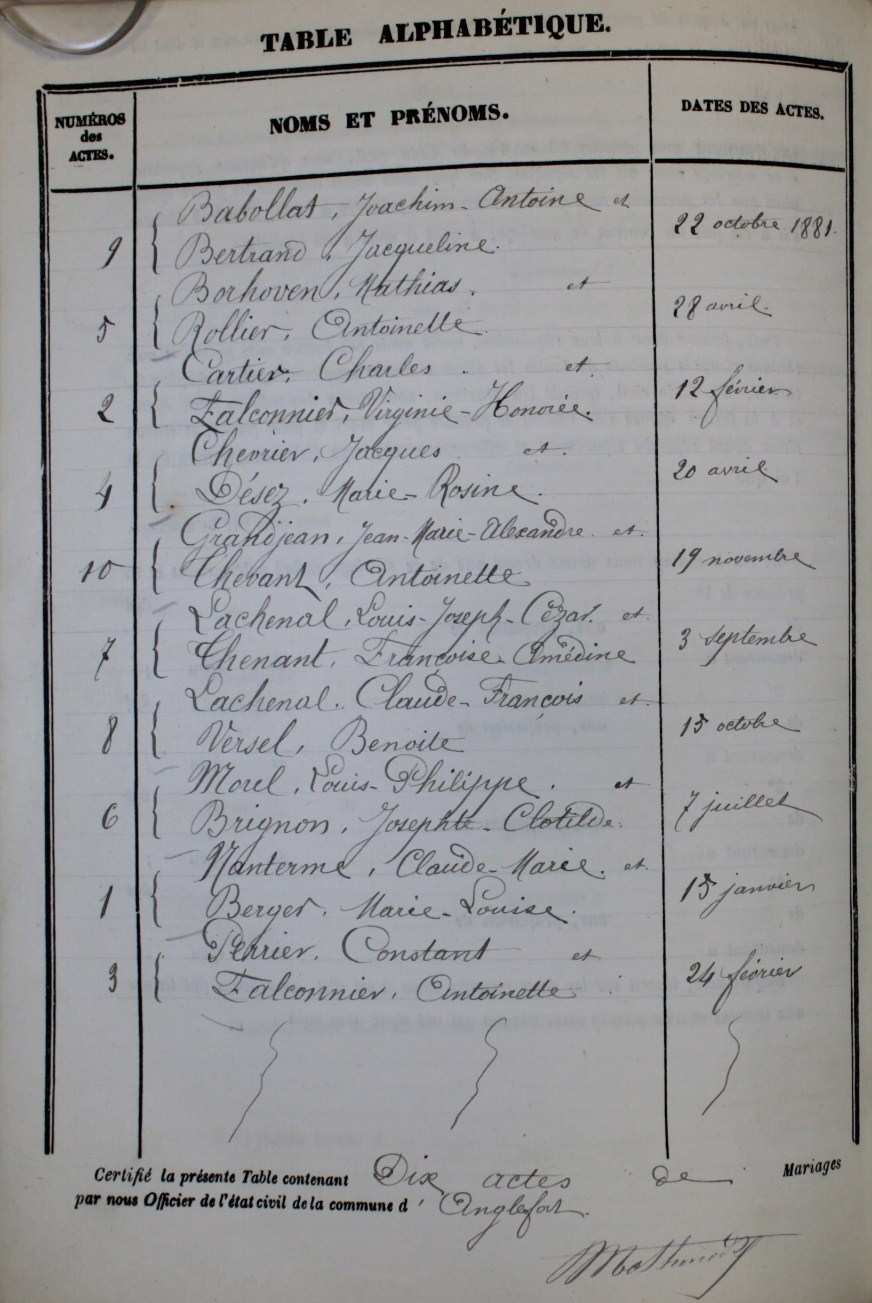 TABLE ALPHABÉTIQUE.
NUMÉROS des ACTES.
NOMS ET PRÉNOMS.
DATES DES ACTES.
Babollat, Joachim-Antoine et
9 Bertrand, Jacqueline. 22 octobre 1881.
Borhoven, Mathias. et
5 Rollier, Antoinette. 28 avril.
Cartier, Charles. et
2 Falconnier, Virginie-Honorée. 12 février
Chevrier, Jacques et.
4 Désez, Marie-Rosine. 20 avril
Grandjean, Jean-Marie-Alexandre. et.
10 Antoinette 19 novembre
Lachenal, Louis-Joseph-Cézar. et
7 Thenant, Françoise Amédine 3 septembre
Lachenal, Claude-François et
8 Versel, Benoite 15 octobre
Morel, Louis-Philippe. et
6 Brignon, Josephte-Clotilde. 7 juillet
Nanterme, Claude-Marie. et
1 Berger, Marie-Louise. 15 janvier
Perrier, Constant et
3 Falconnier, Antoinette 24 février
Certifié la présente Table contenant Dix actes de Mariages
par nous Officier de l'état civil de la commune d'Anglefort.